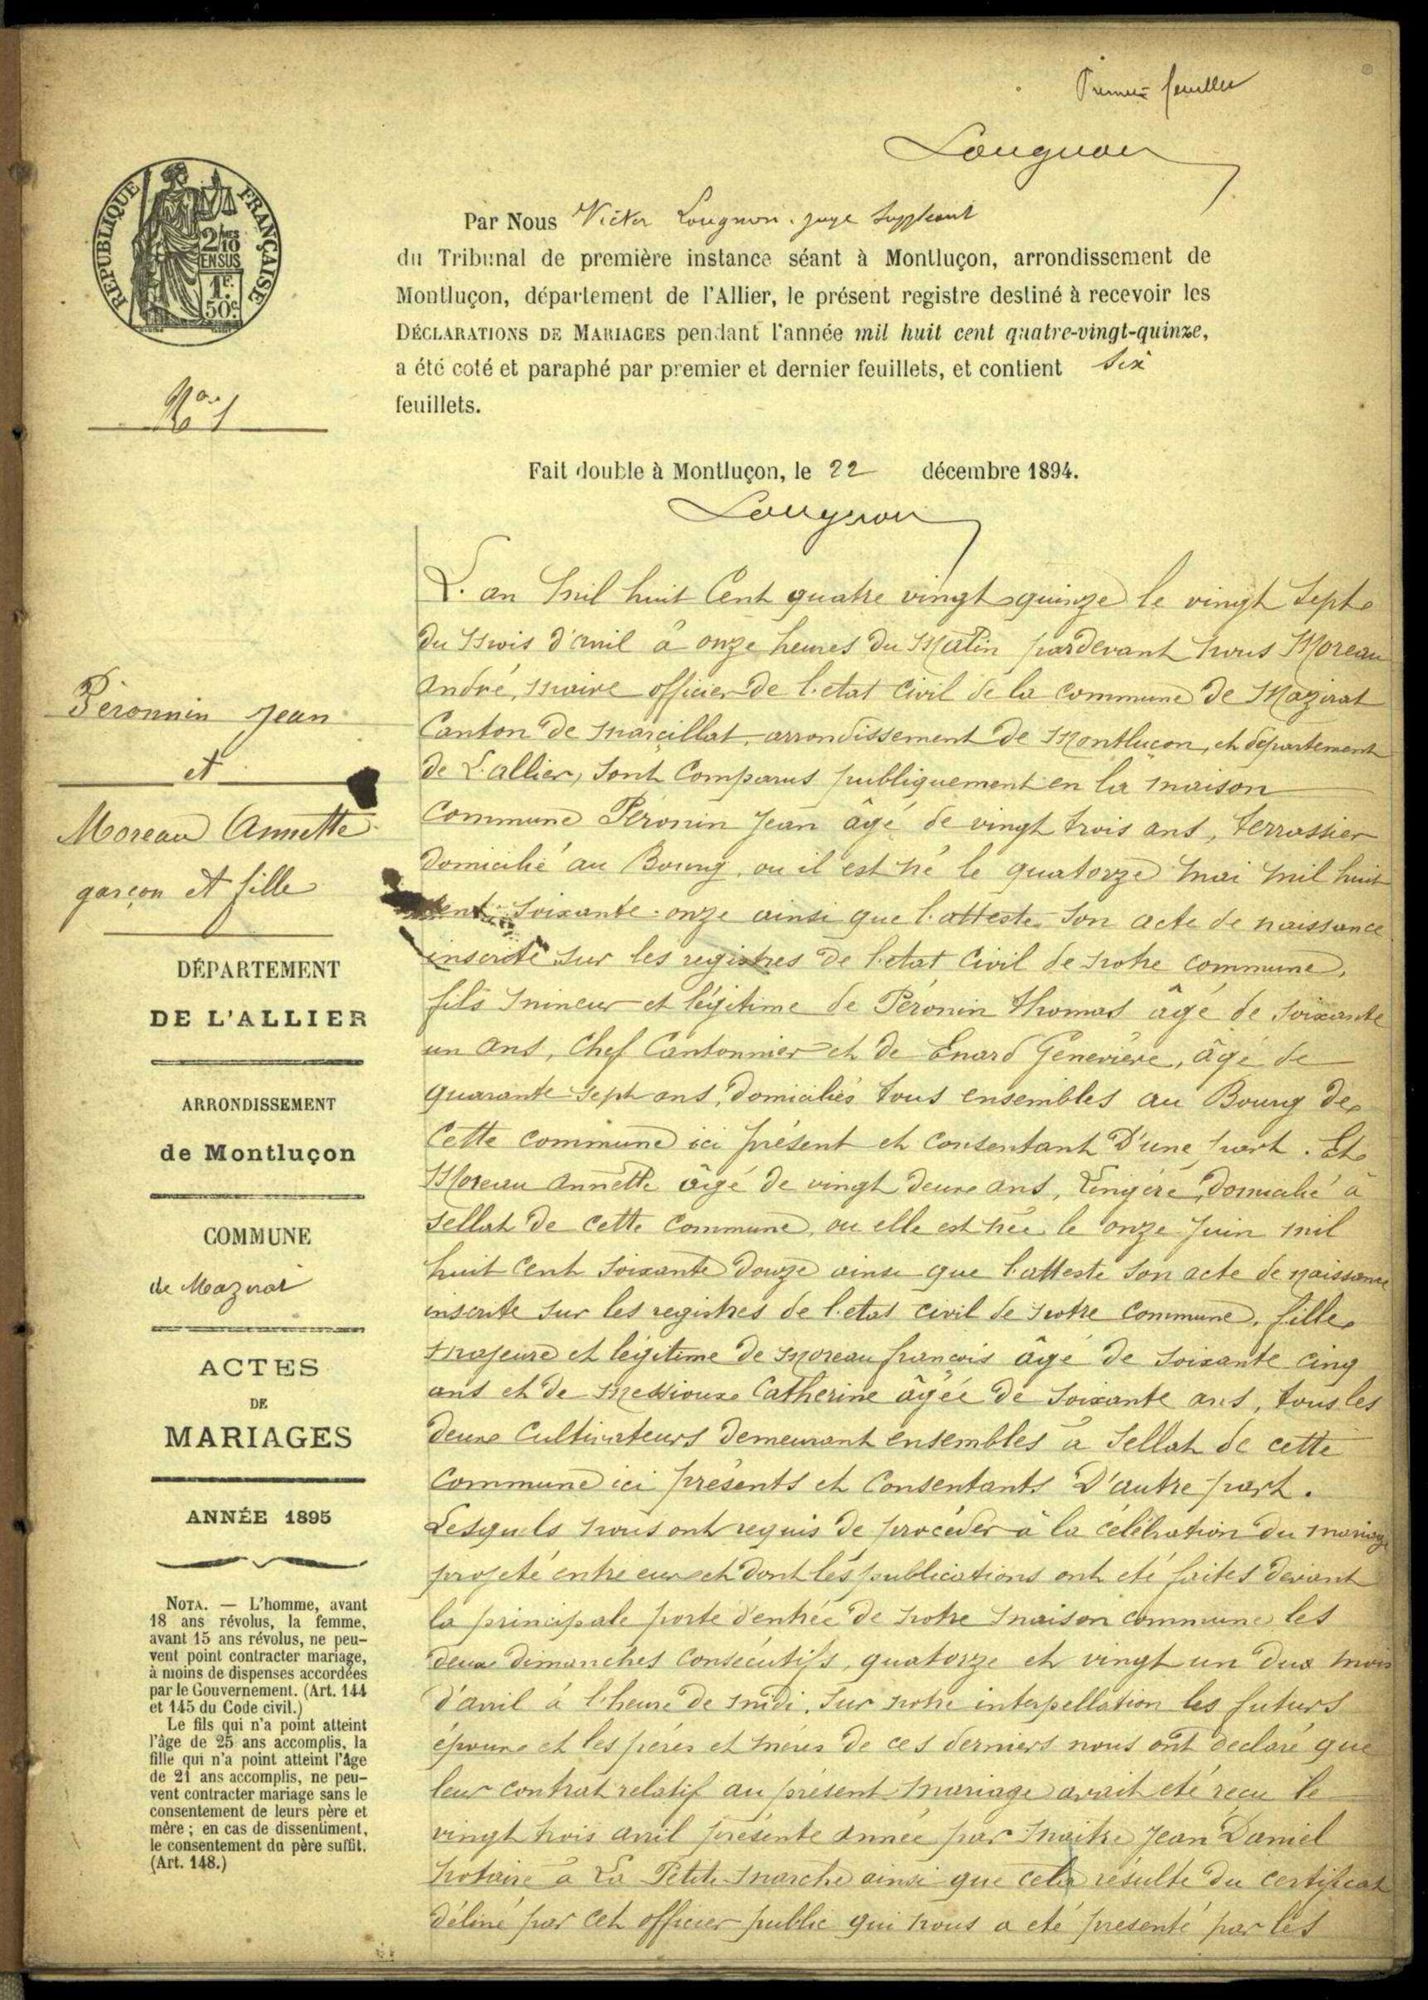 Premier feuillet
Lougnon
RÉPUBLIQUE FRANÇAISE
2/10 MES
EN SUS
1F.
50c.
Par Nous Victor Lougnon, juge suppléant
du Tribunal de première instance séant à Montluçon, arrondissement de
Montluçon, département de l'Allier, le présent registre destiné à recevoir les
DÉCLARATIONS DE MARIAGES pendant l'année mil huit cent quatre-vingt-quinze,
a été coté et paraphé par premier et dernier feuillets, et contient six
feuillets.
Fait double à Montluçon, le 22 décembre 1894.
Lougnon
No 1
Péronnin Jean
et
Moreau Annette
garçon et fille
DÉPARTEMENT
DE L'ALLIER
ARRONDISSEMENT
de Montluçon
COMMUNE
de Mazirat
ACTES
DE
MARIAGES
ANNÉE 1895
NOTA. — L'homme, avant
18 ans révolus, la femme,
avant 15 ans révolus, ne peu-
vent point contracter mariage,
à moins de dispenses accordées
par le Gouvernement. (Art. 144
et 145 du Code civil.)
Le fils qui n'a point atteint
l'âge de 25 ans accomplis, la
fille qui n'a point atteint l'âge
de 21 ans accomplis, ne peu-
vent contracter mariage sans le
consentement de leurs père et
mère ; en cas de dissentiment,
le consentement du père suffit.
(Art. 148.)
L'an mil huit Cent quatre vingt quinze le vingt sept
du mois d'avril à onze heures du Matin pardevant nous Moreau
André, maire officier de l'etat Civil de la commune de Mazirat
Canton de marcillat, arrondissement de Montlucon, et departement
de L'allier, sont Comparus publiquement en la maison
Commune Péronin Jean âgé de vingt trois ans, terrassier
domicilié au Bourg, ou il est né le quatorze mai mil huit
cent soixante-onze ainsi que l'atteste son acte de naissance
inscrite sur les registres de l'etat Civil de notre commune,
fils mineur et légitime de Péronin Thomas âgé de soixante
un ans, Chef Cantonnier et de Enard Geneviève, âgé de
quarante sept ans, domiciliés tous ensembles au Bourg de
Cette commune ici présent et consentant D'une part. Et
Moreau Annette âgé de vingt deux ans, Lingère, domicilié à
Sellat de cette Commune, ou elle est née le onze juin mil
huit Cent soixante douze ainsi que l'atteste son acte de naissance
inscrite sur les registres de l'etat civil de notre commune, fille
majeure et légitime de Moreau francois âgé de soixante cinq
ans et de Messioux Catherine âgée de soixante ans, tous les
deux Cultivateurs demeurant ensembles à Sellat de cette
Commune ici présents et Consentants D'autre part.
Lesquels nous ont requis de procéder à la célébration du mariage
projeté entre eux et dont les publications ont été faites devant
la principale porte d'entrée de notre maison commune les
deux dimanches Consécutifs, quatorze et vingt un dux mois
d'avril à l'heure de midi. Sur notre interpellation les futurs
époux et les pères et mères de ces derniers nous ont déclaré que
leur contrat relatif au présent mariage avait été recu le
vingt trois avril présente année par maitre Jean Daniel
Notaire à La Petite Marche ainsi que cela résulte du certificat
délivré par cet officier public qui nous a été présenté par les